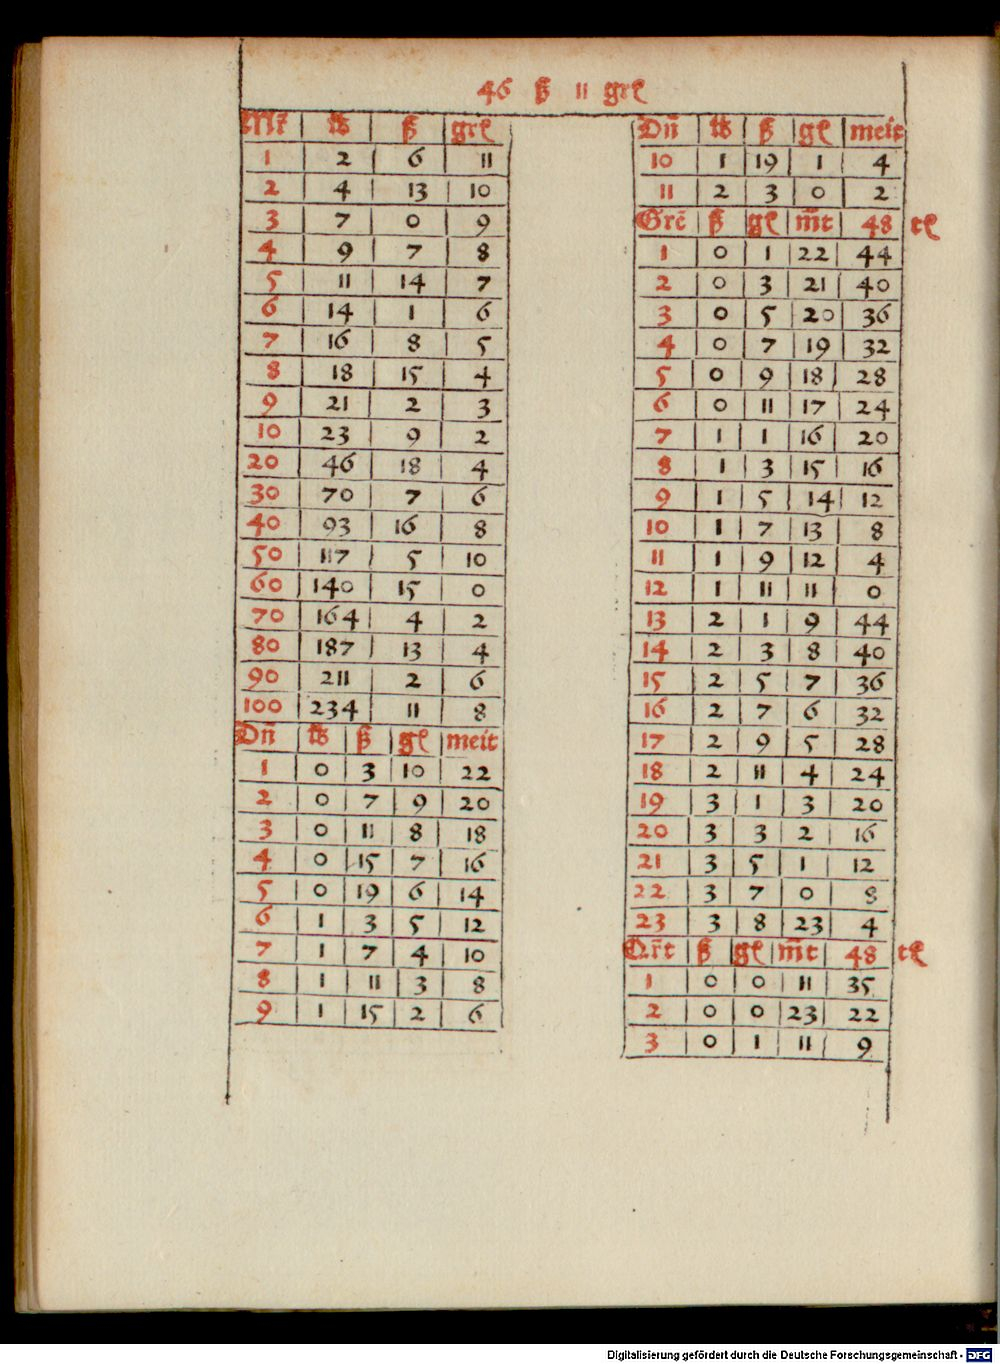 46 ß 11 grꝭ
Mr̄ | lb | ß | grꝭ
1 | 2 | 6 | 11
2 | 4 | 13 | 10
3 | 7 | 0 | 9
4 | 9 | 7 | 8
5 | 11 | 14 | 7
6 | 14 | 1 | 6
7 | 16 | 8 | 5
8 | 18 | 15 | 4
9 | 21 | 2 | 3
10 | 23 | 9 | 2
20 | 46 | 18 | 4
30 | 70 | 7 | 6
40 | 93 | 16 | 8
50 | 117 | 5 | 10
60 | 140 | 15 | 0
70 | 164 | 4 | 2
80 | 187 | 13 | 4
90 | 211 | 2 | 6
100 | 234 | 11 | 8
Dn̄ | lb | ß | gꝭ | meit
1 | 0 | 3 | 10 | 22
2 | 0 | 7 | 9 | 20
3 | 0 | 11 | 8 | 18
4 | 0 | 15 | 7 | 16
5 | 0 | 19 | 6 | 14
6 | 1 | 3 | 5 | 12
7 | 1 | 7 | 4 | 10
8 | 1 | 11 | 3 | 8
9 | 1 | 15 | 2 | 6
Dn̄ | lb | ß | gꝭ | meit
10 | 1 | 19 | 1 | 4
11 | 2 | 3 | 0 | 2
Grē | ß | gꝭ | m̄t | 48 tꝭ
1 | 0 | 1 | 22 | 44
2 | 0 | 3 | 21 | 40
3 | 0 | 5 | 20 | 36
4 | 0 | 7 | 19 | 32
5 | 0 | 9 | 18 | 28
6 | 0 | 11 | 17 | 24
7 | 1 | 1 | 16 | 20
8 | 1 | 3 | 15 | 16
9 | 1 | 5 | 14 | 12
10 | 1 | 7 | 13 | 8
11 | 1 | 9 | 12 | 4
12 | 1 | 11 | 11 | 0
13 | 2 | 1 | 9 | 44
14 | 2 | 3 | 8 | 40
15 | 2 | 5 | 7 | 36
16 | 2 | 7 | 6 | 32
17 | 2 | 9 | 5 | 28
18 | 2 | 11 | 4 | 24
19 | 3 | 1 | 3 | 20
20 | 3 | 3 | 2 | 16
21 | 3 | 5 | 1 | 12
22 | 3 | 7 | 0 | 8
23 | 3 | 8 | 23 | 4
Qr̄t | ß | gꝭ | m̄t | 48 tꝭ
1 | 0 | 0 | 11 | 35
2 | 0 | 0 | 23 | 22
3 | 0 | 1 | 11 | 9
Digitalisierung gefördert durch die Deutsche Forschungsgemeinschaft - DFG